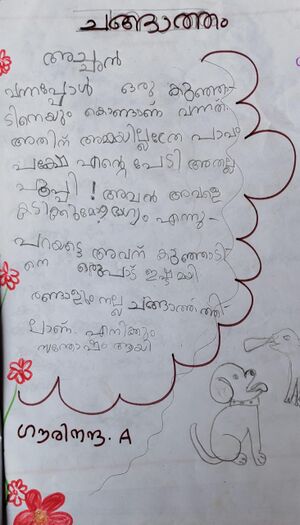 ചങ്ങാത്തം
അച്ചൻ
വന്നപ്പോൾ ഒരു കുഞ്ഞാ-
ടിനെയും കൊണ്ടാണ് വന്നത്.
അതിന് അമ്മയില്ലത്രേ പാവം
പക്ഷേ എന്റെ പേടി അതല്ല
പപ്പി ! അവൻ അവളെ
കടിക്കുമോ എന്നു-
പറയട്ടെ അവന് കുഞ്ഞാടി-
നെ ഒരുപാട് ഇഷ്ടമായി
രണ്ടാളും നല്ല ചങ്ങാത്തത്തി-
ലാണ്. എനിക്കും
സന്തോഷം ആയി
ഗൗരിനന്ദ. A